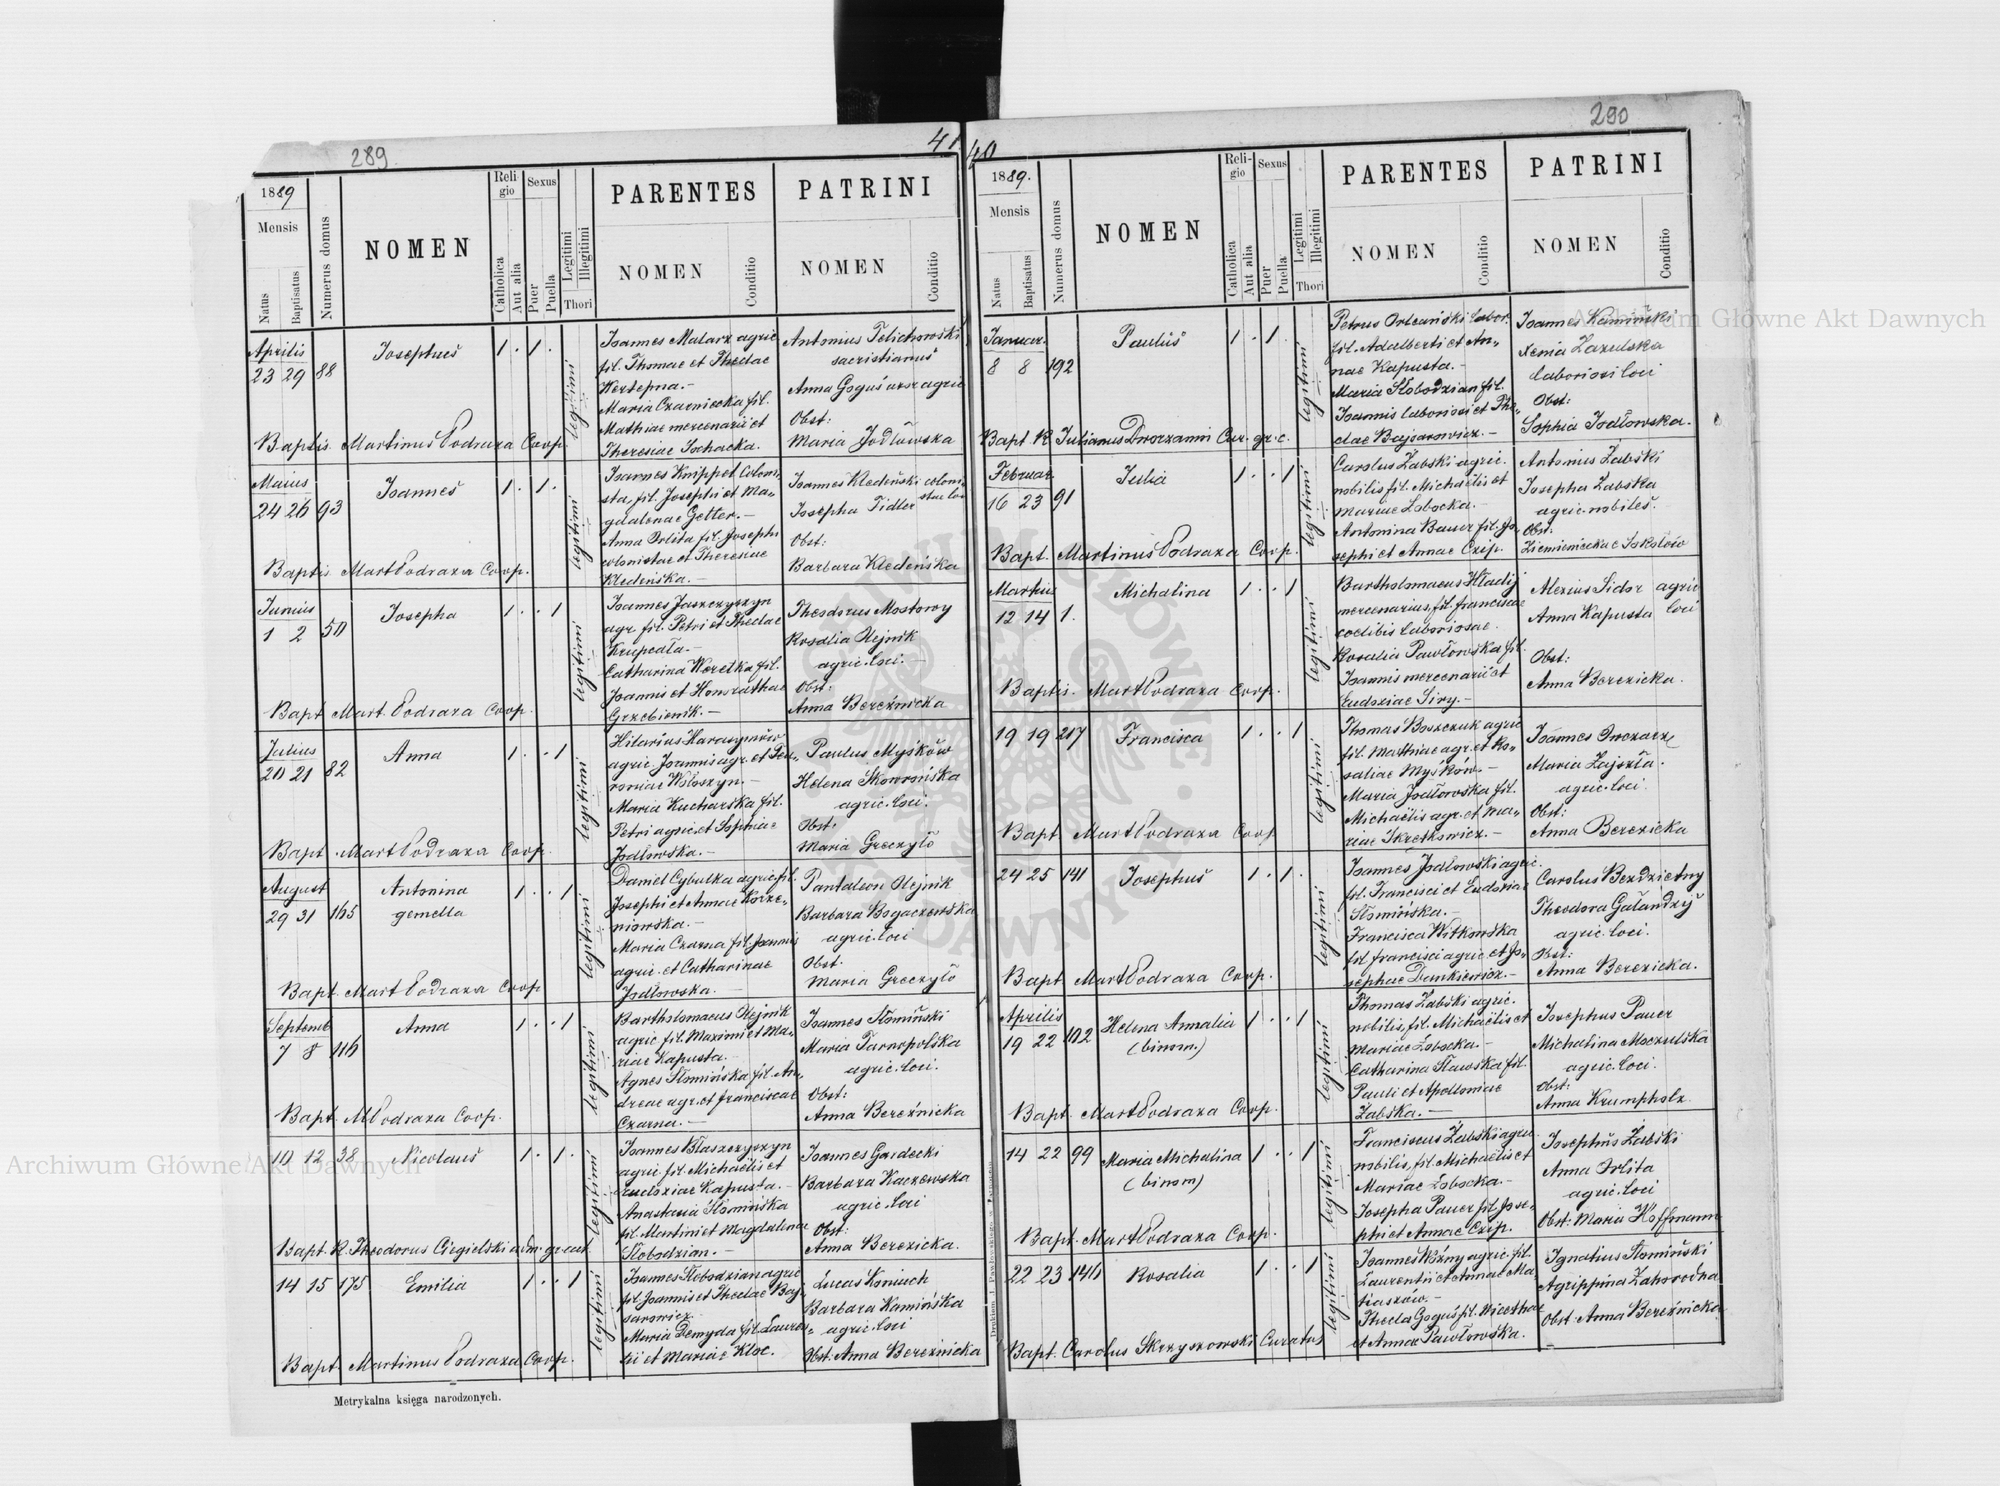 289
41
1889
Mensis
Natus
Baptisatus
Numerus domus
NOMEN
Religio
Catholica
Aut alia
Sexus
Puer
Puella
Legitimi
Illegitimi
Thori
PARENTES
NOMEN
Conditio
PATRINI
NOMEN
Conditio
Aprilis
23 29 88
Josephus
1 . 1 .
legitimi
Joannes Malarz agric
fil. Thomae et Theclae
Wertepna.-
Maria Czarniecka fil.
Mathiae mercenarii et
Theresiae
Antonius
sacristianus
Anna Goguś uxor agric
Obst:
Maria Jodłowska
Baptis. Martinus Podraza Coop.
Maius
24 26 93
Joannes
1 . 1 .
legitimi
Joannes Knippel coloni-
sta, fil. Josephi et Ma-
gdalenae Getter.-
Anna Orlita fil. Josephi
colonistae et Theresiae
Kledeńska.-
Joannes Kledeński coloni-
stae loci
Josepha Fidler
Obst:
Barbara Kledeńska
Baptis. Mart Podraza Coop.
Junius
1 2 50
Josepha
1 . . 1
legitimi
Joannes Jaszczyszyn
agr. fil. Petri et Theclae
Krupcała.-
Catharina Weretka fil.
Joannis et Honorathae
Grzebienik.-
Theodorus Mostowy
Rosalia Olejnik
agric. loci.-
Obst:
Anna Bereźnicka
Bapt. Mart. Podraza Coop.
Julius
20 21 82
Anna
1 . . 1
legitimi
Hilarius Harasymów
agric. Joannis agr. et Feu-
roniae Wołoszyn.-
Maria Kucharska fil.
Petri agric. et Sophiae
Jodłowska.-
Paulus Myśków
Helena Skowrońska
agric. loci.
Obst.
Maria Greczyło
Bapt. Mart Podraza Coop.
August
29 31 165
Antonina
gemella
1 . . 1
legitimi
Daniel Cybulka agric. fil.
Josephi et Annae Korze-
niowska.-
Maria Czarna fil. Joannis
agric. et Catharinae
Jodłowska.-
Pantaleon Olejnik
Barbara Bogaczewska
agric. loci
Obst:
Maria Greczyło
Bapt. Mart Podraza Coop
Septemb
7 8 116
Anna
1 . . 1
legitimi
Bartholomaeus Olejnik
agric fil. Maximi et Ma-
riae Kapusta.-
Agnes Słomińska fil. An-
dreae agr. et Franciscae
Czarna.-
Joannes Słomiński
Maria Tarnopolska
agric. loci.
Obst:
Anna Bereźnicka
Bapt. M Podraza Coop.
10 12 38
Nicolaus
1 . 1 .
legitimi
Joannes Błaszczyszyn
agric. fil. Michaëlis et
Eudoxiae Kapusta.-
Anastasia Słomińska
fil. Martini et Magdalenae
Słobodzian.-
Joannes Gardecki
Barbara Kaczewska
agric. loci
Obst:
Anna Berezicka.
Bapt. R. Theodorus Ciegielski adm. gr. cat.
14 15 175
Emilia
1 . . 1
legitimi
Joannes Słobodzian agric
fil. Joannis et Theclae Baj-
sarowicz.
Maria Demyda fil. Lauren-
tii et Mariae Kloc.
Lucas Koniuch
Barbara Kamińska
agric. loci
Obst: Anna Bereźnicka
Bapt. Martinus Podraza Coop.
Metrykalna księga narodzonych.
290
40
1889.
Mensis
Natus
Baptisatus
Numerus domus
NOMEN
Religio
Catholica
Aut alia
Sexus
Puer
Puella
Legitimi
Illegitimi
Thori
PARENTES
NOMEN
Conditio
PATRINI
NOMEN
Conditio
Januar.
8 8 192
Paulus
1 . 1 .
legitimi
Petrus Orleański labor.
fil. Adalberti et An-
nae Kapusta.-
Maria Słobodzian fil.
Joannis laboriosi et The-
clae Bajsarowicz.-
Joannes Kamiński
Xenia Lazulska
laboriosi loci
Obst:
Sophia Jodłowska.
Bapt. R. Julianus Dworzanin Cur. gr. c.
Februar.
16 23 91
Julia
1 . . 1
legitimi
Carolus Żabski agric.
nobilis fil. Michaëlis et
Mariae Łobocka.-
Antonina Bauer fil. Jo-
sephi et Annae Czip.
Antonius Żabski
Josepha Żabska
agric. nobiles.
Obst.
Bapt. Martinus Podraza Coop.
Martius
12 14 1.
Michalina
1 . . 1
legitimi
Bartholomaeus Hładij
mercenarius, fil. Franciscae
coelibis laboriosae.
Rosalia Pawłowska fil.
Joannis mercenarii et
Eudoxiae Siry.-
Alexius Sidor agric
loci
Anna Kapusta
Obst:
Anna Berezicka.
Baptis. Mart Podraza Coop.
19 19 217
Francisca
1 . . 1
legitimi
Thomas Boszczuk agric
fil. Mathiae agr. et Ro-
saliae Myśków.-
Maria Jodłowska fil.
Michaëlis agr. et Ma-
riae Skretkowicz.-
Joannes Owczarz
Maria Zajszła.
agric. loci.
Obst:
Anna Berezicka
Bapt. Mart Podraza Coop
24 25 141
Josephus
1 . 1 .
legitimi
Joannes Jodłowski agric.
fil. Francisci et Eudoxiae
Słomińska.-
Francisca Witkowska
fil Francisci agric. et Jo-
sephae Dankiewicz.-
Carolus Bezdzietny
Theodora Gałandzij
agric. loci.
Obst:
Anna Berezicka.
Bapt. Mart Podraza Coop.
Aprilis
19 22 102
Helena Amalia
(binom.)
1 . . 1
legitimi
Thomas Żabski agric.
nobilis, fil. Michaëlis et
Mariae Łobocka.-
Catharina Sławska fil.
Pauli et Apolloniae
Żabska.-
Josephus Pauer
Michalina Moczulska
agric. loci.
Obst:
Anna Krumpholz
Bapt. Mart Podraza Coop.
14 22 99
Maria Michalina
(binom)
1 . . 1
legitimi
Franciscus Żabski agric
nobilis, fil. Michaëlis et
Mariae Łobocka.-
Josepha Pauer fil. Jose-
phi et Annae Czip.
Josephus Żabski
Anna Orlita
agric. loci
Obst: Maria Hoffmann
Bapt. Mart Podraza Coop.
22 23 140
Rosalia
1 . . 1
legitimi
Joannes Woźny agric. fil.
Laurentii et Annae Ma-
tiaszów.-
Thecla Goguś fil. Nicetha
et Annae Pawłowska.
Ignatius Słomiński
Agrippina Zahorodna
Obst: Anna Bereźnicka
Bapt. Carolus Skrzyszowski Curatus
Drukiem J. Pawłowskiego w Tarnopolu
Archiwum Główne Akt Dawnych
Archiwum Główne Akt Dawnych
ARCHIWUM GŁÓWNE AKT DAWNYCH